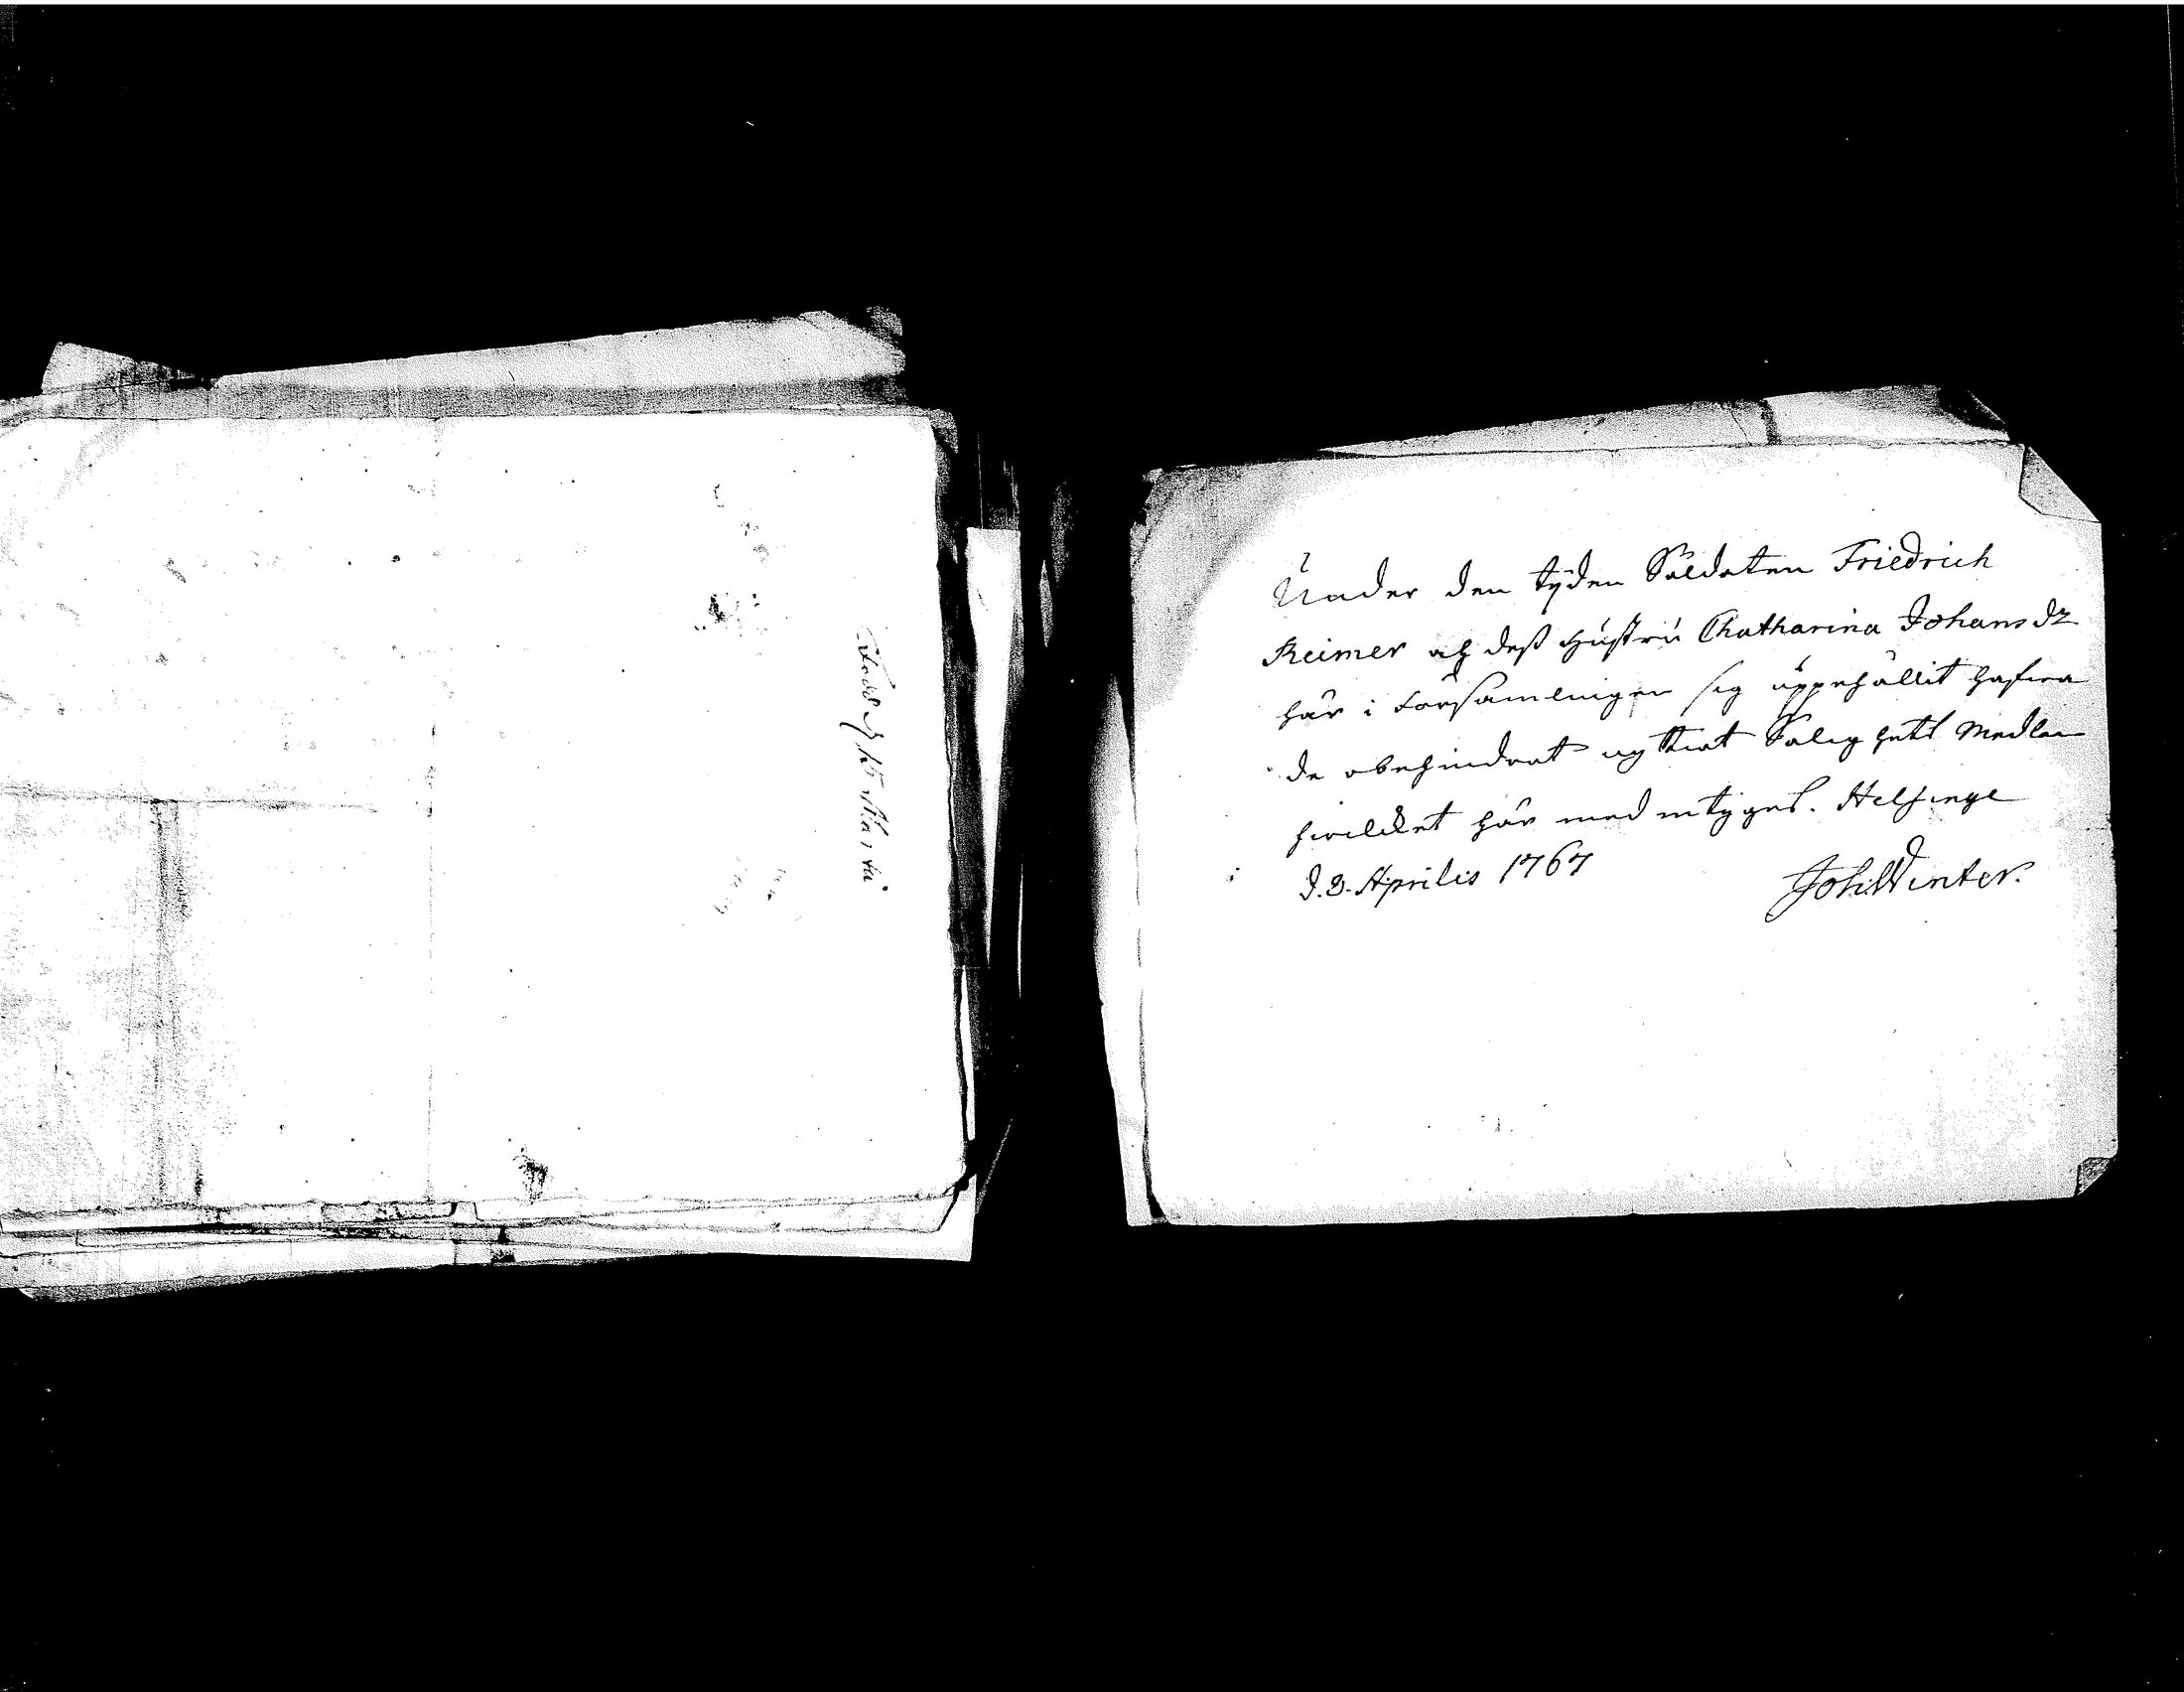 Under den tyden Soldaten Friedrich
Reimer och desß Hustru Chatharina Johansdr
här i Församlingen sig uppehållit hafwa
de obehindrat nyttiat Salighetz Medlen
hwilcket här med intÿgas. Helsinge
d. 3. Aprilis 1767
Joh: Winter.